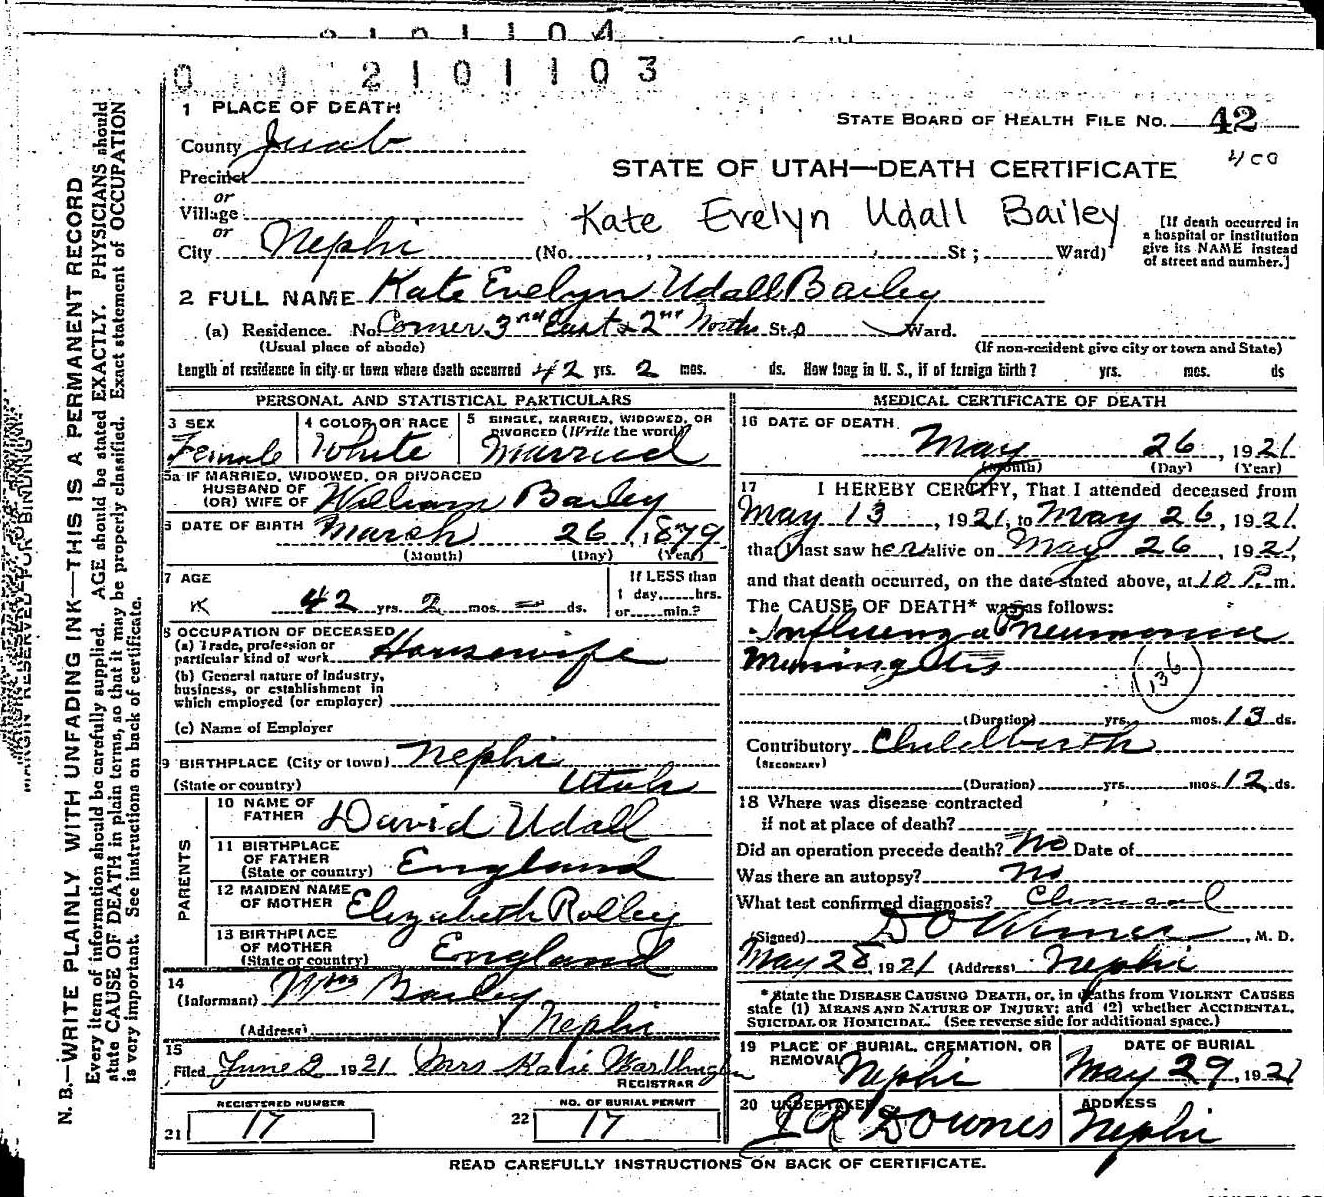 2101104
0 1 2101103
1 PLACE OF DEATH
STATE BOARD OF HEALTH FILE No. 42
400
County Juab
STATE OF UTAH—DEATH CERTIFICATE
Precinct
or
Village
or
Kate Evelyn Udall Bailey
[If death occurred in
a hospital or institution
give its NAME instead
of street and number.]
City Nephi (No. , St ; Ward)
2 FULL NAME Kate Evelyn Udall Bailey
(a) Residence. No Corner 3rd East & 2nd North St. Ward.
(Usual place of abode) (If non-resident give city or town and State)
Length of residence in city or town where death occurred 42 yrs. 2 mos. ds. How long in U. S., if of foreign birth? yrs. mos. ds
PERSONAL AND STATISTICAL PARTICULARS
3 SEX
Female
4 COLOR OR RACE
White
5 SINGLE, MARRIED, WIDOWED, OR
DIVORCED (Write the word)
Married
5a IF MARRIED, WIDOWED, OR DIVORCED
HUSBAND OF
(OR) WIFE OF William Bailey
6 DATE OF BIRTH March 26, 1879
(Month) (Day) (Year)
7 AGE
42 yrs. 2 mos. — ds.
If LESS than
1 day, hrs.
or min.?
8 OCCUPATION OF DECEASED
(a) Trade, profession or
particular kind of work Housewife
(b) General nature of industry,
business, or establishment in
which employed (or employer)
(c) Name of Employer
9 BIRTHPLACE (City or town) Nephi
(State or country) Utah
PARENTS
10 NAME OF
FATHER David Udall
11 BIRTHPLACE
OF FATHER
(State or country) England
12 MAIDEN NAME
OF MOTHER Elizabeth Rolley
13 BIRTHPLACE
OF MOTHER
(State or country) England
14
(Informant) Wm Bailey
(Address) Nephi
15
Filed June 2 1921 Mrs Katie
REGISTRAR
REGISTERED NUMBER
21 17
NO. OF BURIAL PERMIT
22 17
MEDICAL CERTIFICATE OF DEATH
16 DATE OF DEATH
May 26, 1921
(Month) (Day) (Year)
17 I HEREBY CERTIFY, That I attended deceased from
May 13, 1921, to May 26, 1921
that I last saw her alive on May 26, 1921,
and that death occurred, on the date stated above, at 10 P.m.
The CAUSE OF DEATH* was as follows:
Influenza Pneumonia
Meningitis
136
(Duration) yrs. mos. 13 ds.
Contributory Childbirth
(SECONDARY)
(Duration) yrs. mos. 12 ds.
18 Where was disease contracted
if not at place of death?
Did an operation precede death? No Date of
Was there an autopsy? no
What test confirmed diagnosis? Clinical
(Signed) , M. D.
May 28, 1921 (Address) Nephi
* State the DISEASE CAUSING DEATH, or, in deaths from VIOLENT CAUSES
state (1) MEANS AND NATURE OF INJURY; and (2) whether ACCIDENTAL,
SUICIDAL OR HOMICIDAL. (See reverse side for additional space.)
19 PLACE OF BURIAL, CREMATION, OR
REMOVAL Nephi
DATE OF BURIAL
May 29, 1921
20 UNDERTAKER
Downes
ADDRESS
Nephi
READ CAREFULLY INSTRUCTIONS ON BACK OF CERTIFICATE.
MARGIN RESERVED FOR BINDING
N. B.—WRITE PLAINLY WITH UNFADING INK—THIS IS A PERMANENT RECORD
Every item of information should be carefully supplied. AGE should be stated EXACTLY. PHYSICIANS should
state CAUSE OF DEATH in plain terms, so that it may be properly classified. Exact statement of OCCUPATION
is very important. See instructions on back of certificate.